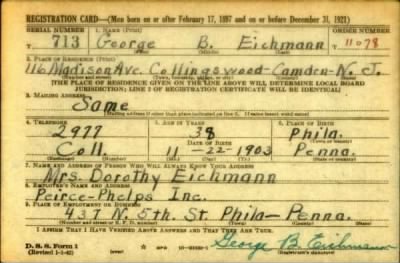 REGISTRATION CARD—(Men born on or after February 17, 1897 and on or before December 31, 1921)
SERIAL NUMBER 1. NAME (Print) ORDER NUMBER
T 713 George B. Eichmann T 11078
(First) (Middle) (Last)
2. PLACE OF RESIDENCE (Print)
116 Madison Ave. Collingswood-Camden-N. J.
(Number and street) (Town, township, village, or city) (County) (State)
[THE PLACE OF RESIDENCE GIVEN ON THE LINE ABOVE WILL DETERMINE LOCAL BOARD
JURISDICTION; LINE 2 OF REGISTRATION CERTIFICATE WILL BE IDENTICAL]
3. MAILING ADDRESS
Same
[Mailing address if other than place indicated on line 2. If same insert word same]
4. TELEPHONE 5. AGE IN YEARS 6. PLACE OF BIRTH
2977 38 Phila.
DATE OF BIRTH (Town or county)
Coll. 11 -22-1903 Penna.
(Exchange) (Number) (Mo.) (Day) (Yr.) (State or country)
7. NAME AND ADDRESS OF PERSON WHO WILL ALWAYS KNOW YOUR ADDRESS
Mrs. Dorothy Eichmann
8. EMPLOYER'S NAME AND ADDRESS
Peirce-Phelps Inc.
9. PLACE OF EMPLOYMENT OR BUSINESS
437 N. 5th. St. Phila- Penna.
(Number and street or R. F. D. number) (Town) (County) (State)
I AFFIRM THAT I HAVE VERIFIED ABOVE ANSWERS AND THAT THEY ARE TRUE.
D. S. S. Form 1
(Revised 1-1-42) (over) GPO
George B. Eichmann
(Registrant's signature)